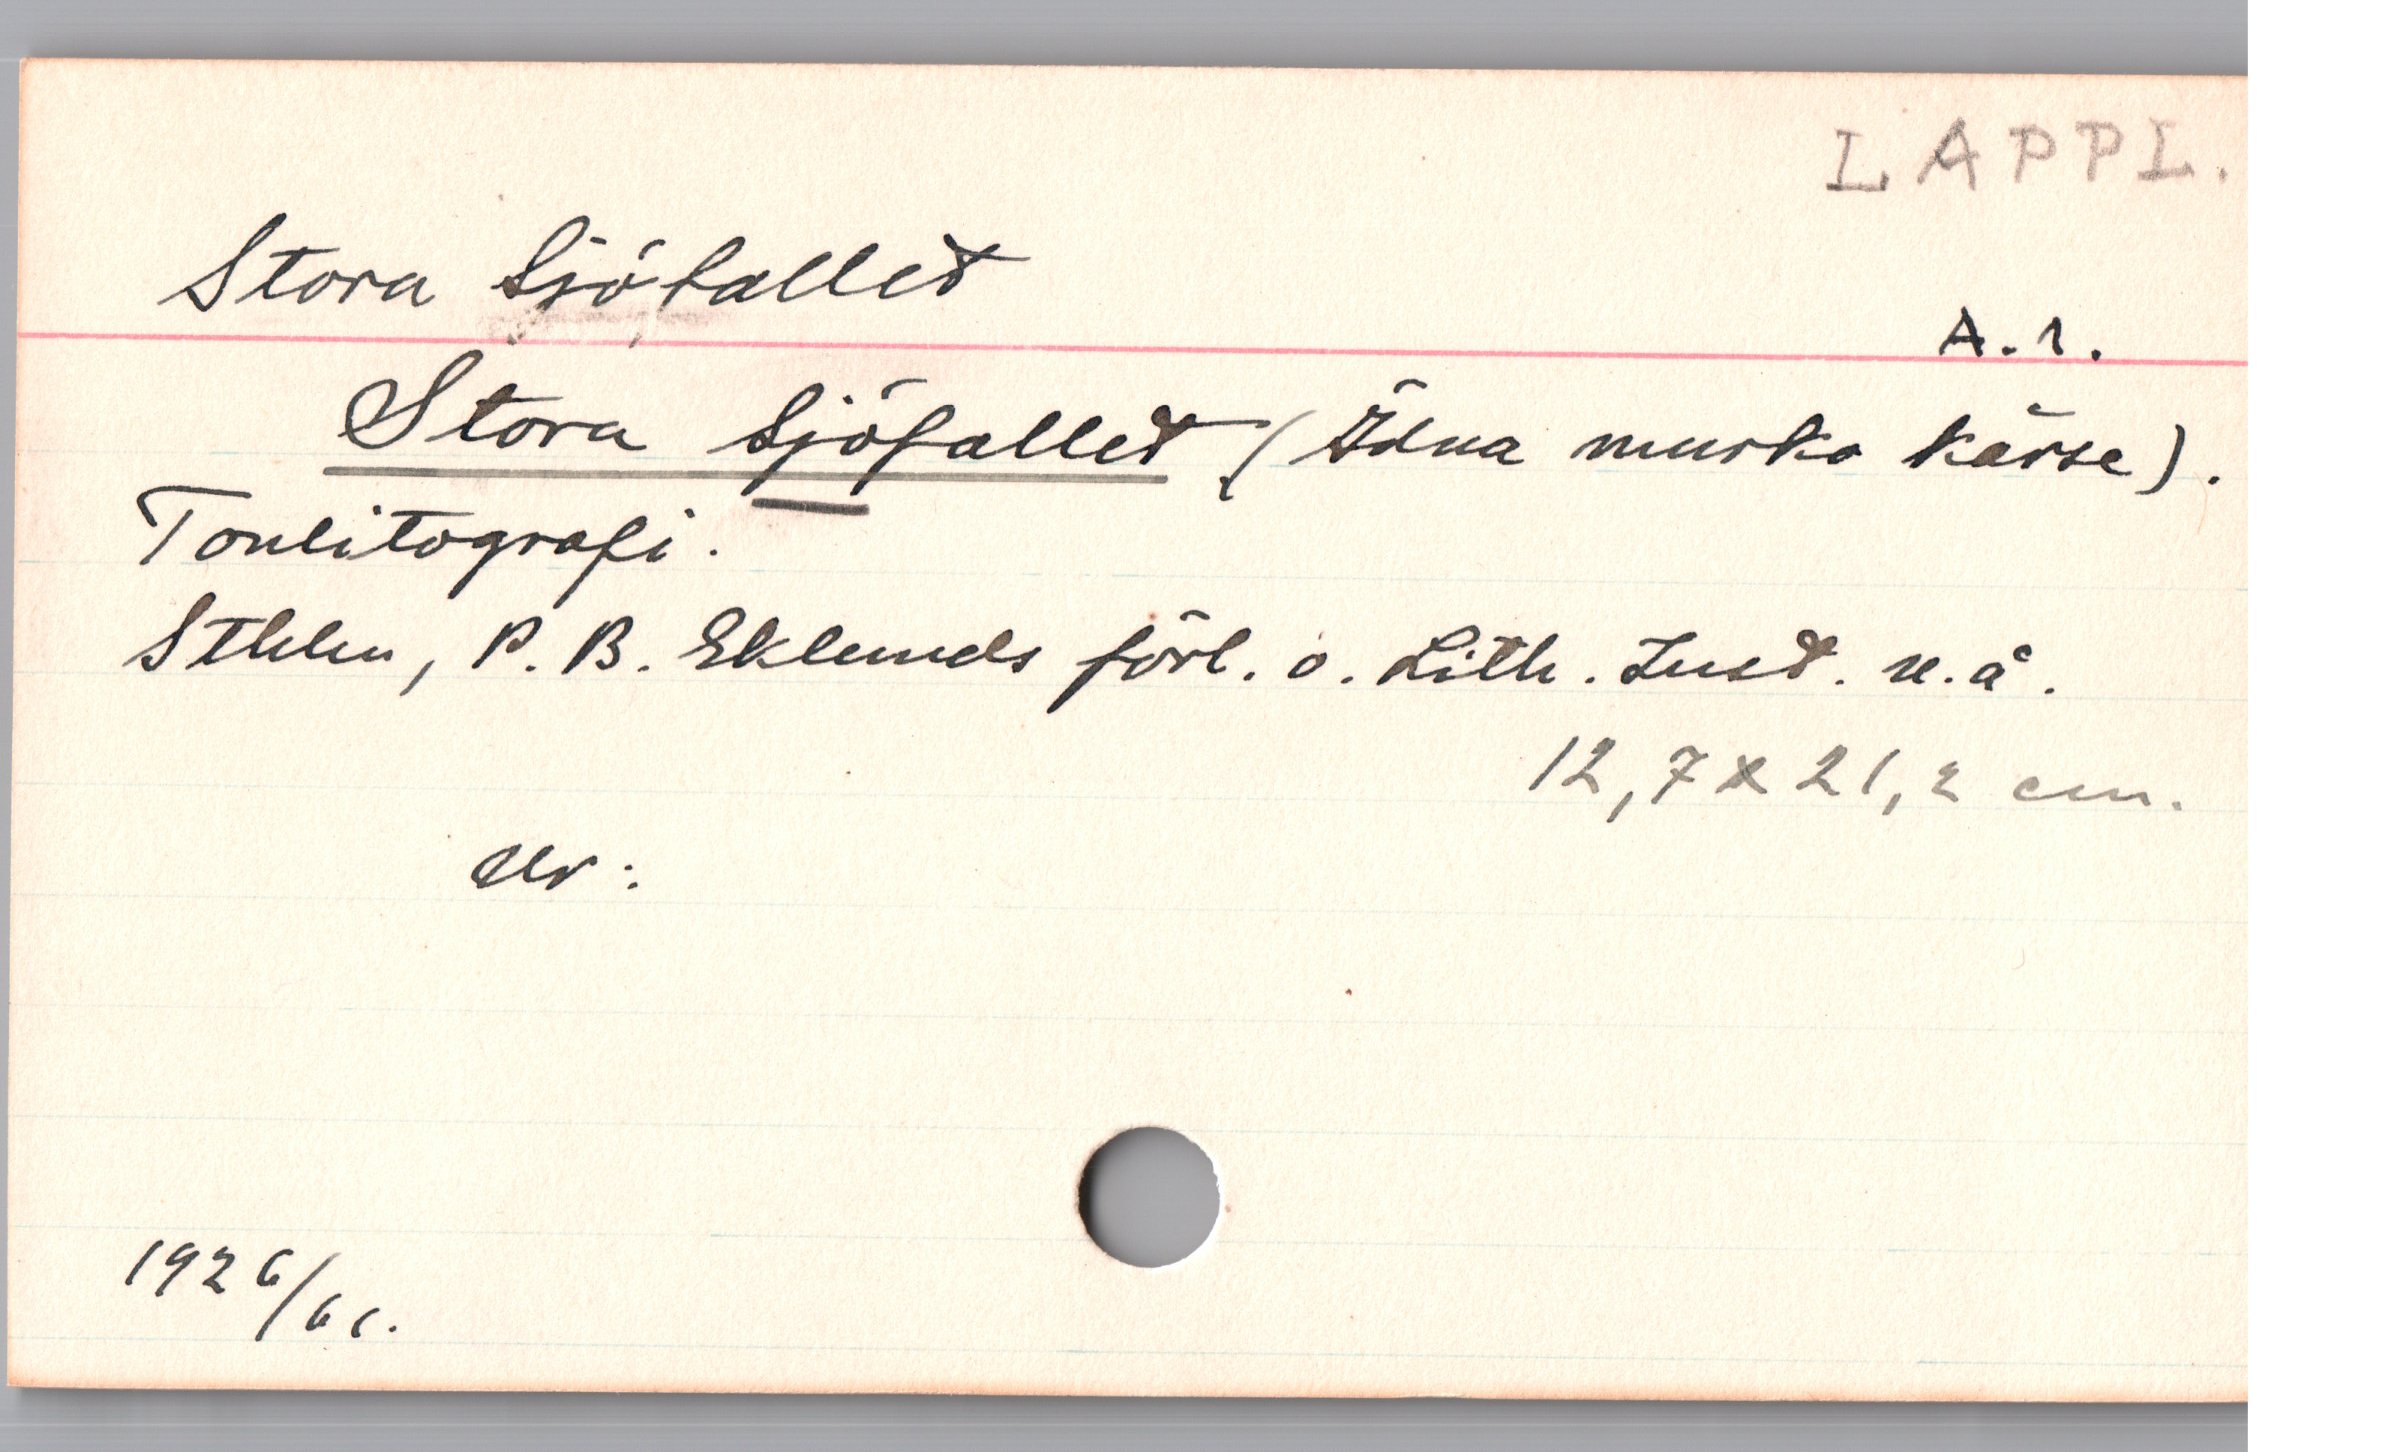 LAPPL.
Stora Sjöfallet
A.1.
Stora Sjöfallet (Ädna murka kårse).
Tonlitografi.
Sthlm, P. B. Eklunds förl. o. Lith. Inst. u.å.
12,7 x 21,2 cm.
Ur:
1926/61.